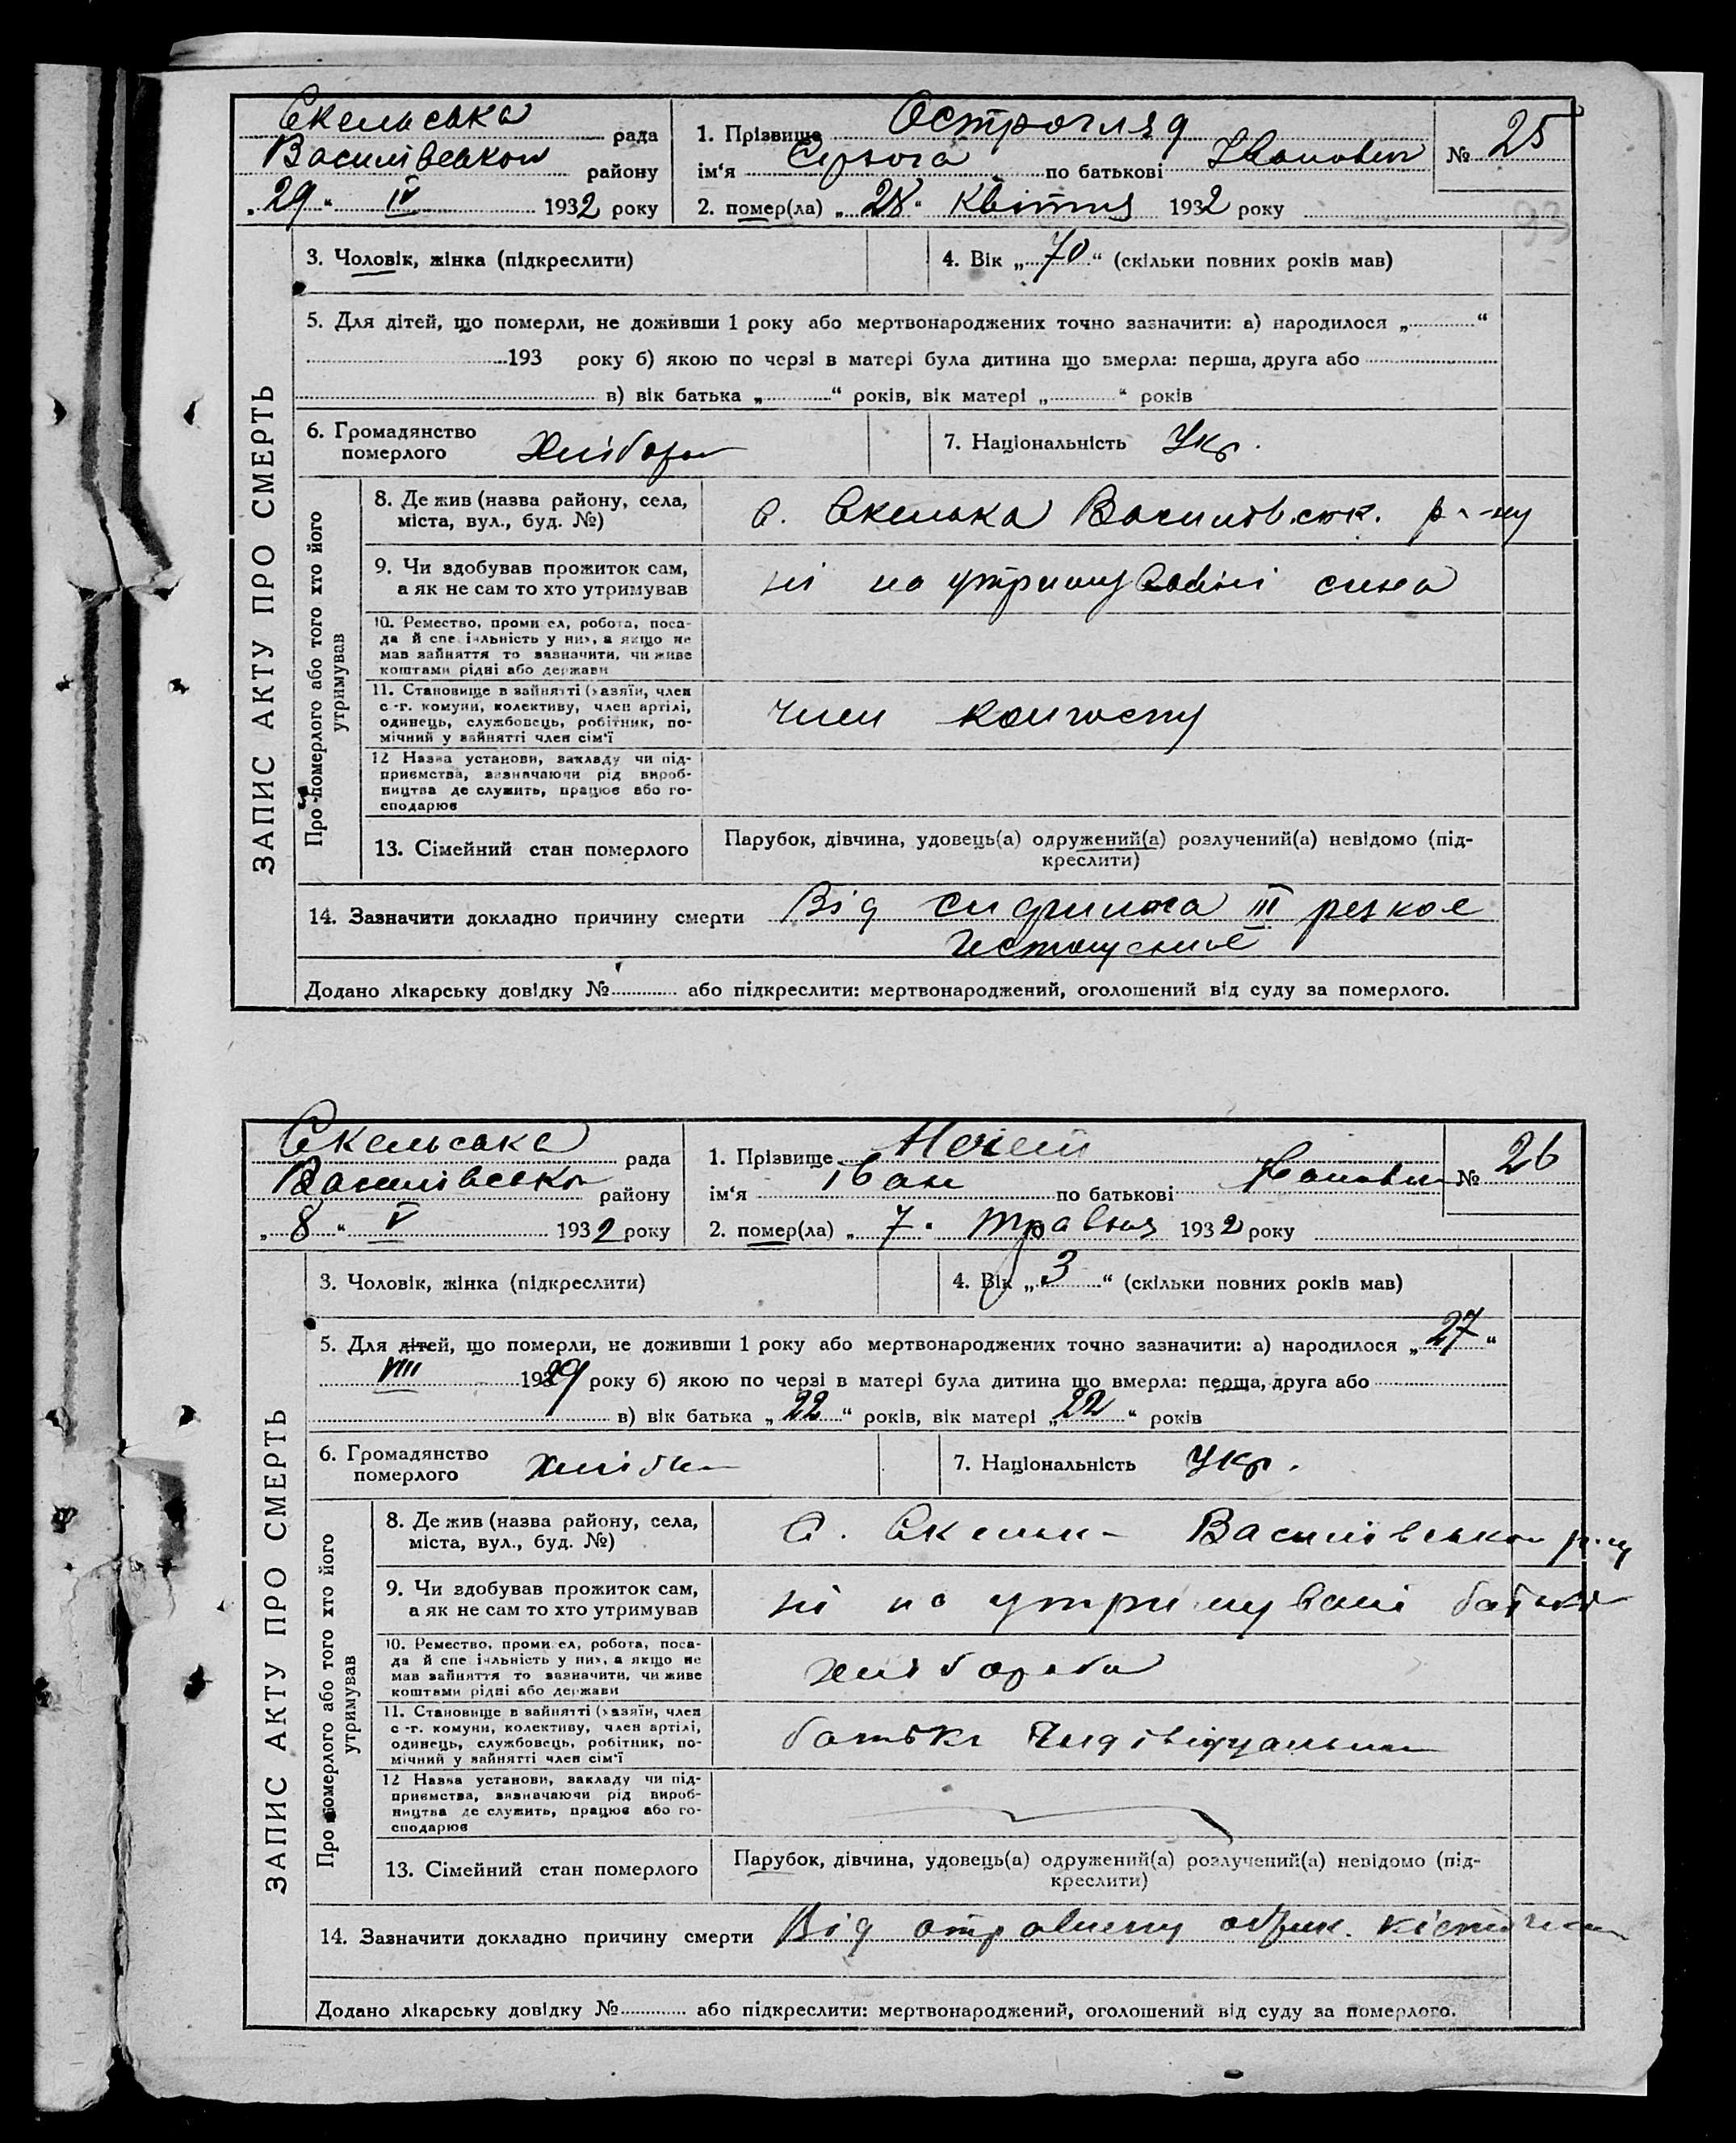 Скельська рада
Василівськои району
„29“ IV 1932 року
1. Прізвище Острогляд
ім'я Сірьога по батькові Іванович
№ 25
2. помер(ла) „28“ Квітня 1932 року
93
ЗАПИС АКТУ ПРО СМЕРТЬ
3. Чоловік, жінка (підкреслити)
4. Вік „70“ (скільки повних років мав)
5. Для дітей, що померли, не доживши 1 року або мертвонароджених точно зазначити: а) народилося „ “
193 року б) якою по черзі в матері була дитина що вмерла: перша, друга або
в) вік батька „ “ років, вік матері „ “ років
6. Громадянство
померлого
Хлібороб
7. Національність Укр.
Про померлого або того хто його
утримував
8. Де жив (назва району, села,
міста, вул., буд. №)
с. Скелька Василівськ. р-ну
9. Чи здобував прожиток сам,
а як не сам то хто утримував
ні на утримуванні сина
10. Ремество, промисел, робота, поса-
да й спеціяльність у них, а якщо не
мав зайняття то зазначити, чи живе
коштами рідні або держави
11. Становище в зайнятті (хазяїн, член
с.-г. комуни, колективу, член артілі,
одинець, службовець, робітник, по-
мічний у зайнятті член сім'ї
член колгоспу
12 Назва установи, закладу чи під-
приємства, зазначаючи рід вироб-
ництва де служить, працює або го-
сподарює
13. Сімейний стан померлого
Парубок, дівчина, удовець(а) одружений(а) розлучений(а) невідомо (під-
креслити)
14. Зазначити докладно причину смерти Від сифилиса III резкое
истощение
Додано лікарську довідку № або підкреслити: мертвонароджений, оголошений від суду за померлого.
Скельська рада
Василівськои району
„8“ V 1932 року
1. Прізвище
ім'я Іван по батькові Іванович
№ 26
2. помер(ла) „7“ травня 1932 року
ЗАПИС АКТУ ПРО СМЕРТЬ
3. Чоловік, жінка (підкреслити)
4. Вік „3“ (скільки повних років мав)
5. Для дітей, що померли, не доживши 1 року або мертвонароджених точно зазначити: а) народилося „27“
VIII 1929 року б) якою по черзі в матері була дитина що вмерла: перша, друга або
в) вік батька „22“ років, вік матері „22“ років
6. Громадянство
померлого
7. Національність Укр.
Про померлого або того хто його
утримував
8. Де жив (назва району, села,
міста, вул., буд. №)
с. Скельки Василівськои р-ну
9. Чи здобував прожиток сам,
а як не сам то хто утримував
ні на утримувані батька
10. Ремество, промисел, робота, поса-
да й спеціяльність у них, а якщо не
мав зайняття то зазначити, чи живе
коштами рідні або держави
хлібороба
11. Становище в зайнятті (хазяїн, член
с.-г. комуни, колективу, член артілі,
одинець, службовець, робітник, по-
мічний у зайнятті член сім'ї
12 Назва установи, закладу чи під-
приємства, зазначаючи рід вироб-
ництва де служить, працює або го-
сподарює
13. Сімейний стан померлого
Парубок, дівчина, удовець(а) одружений(а) розлучений(а) невідомо (під-
креслити)
14. Зазначити докладно причину смерти Від
Додано лікарську довідку № або підкреслити: мертвонароджений, оголошений від суду за померлого.